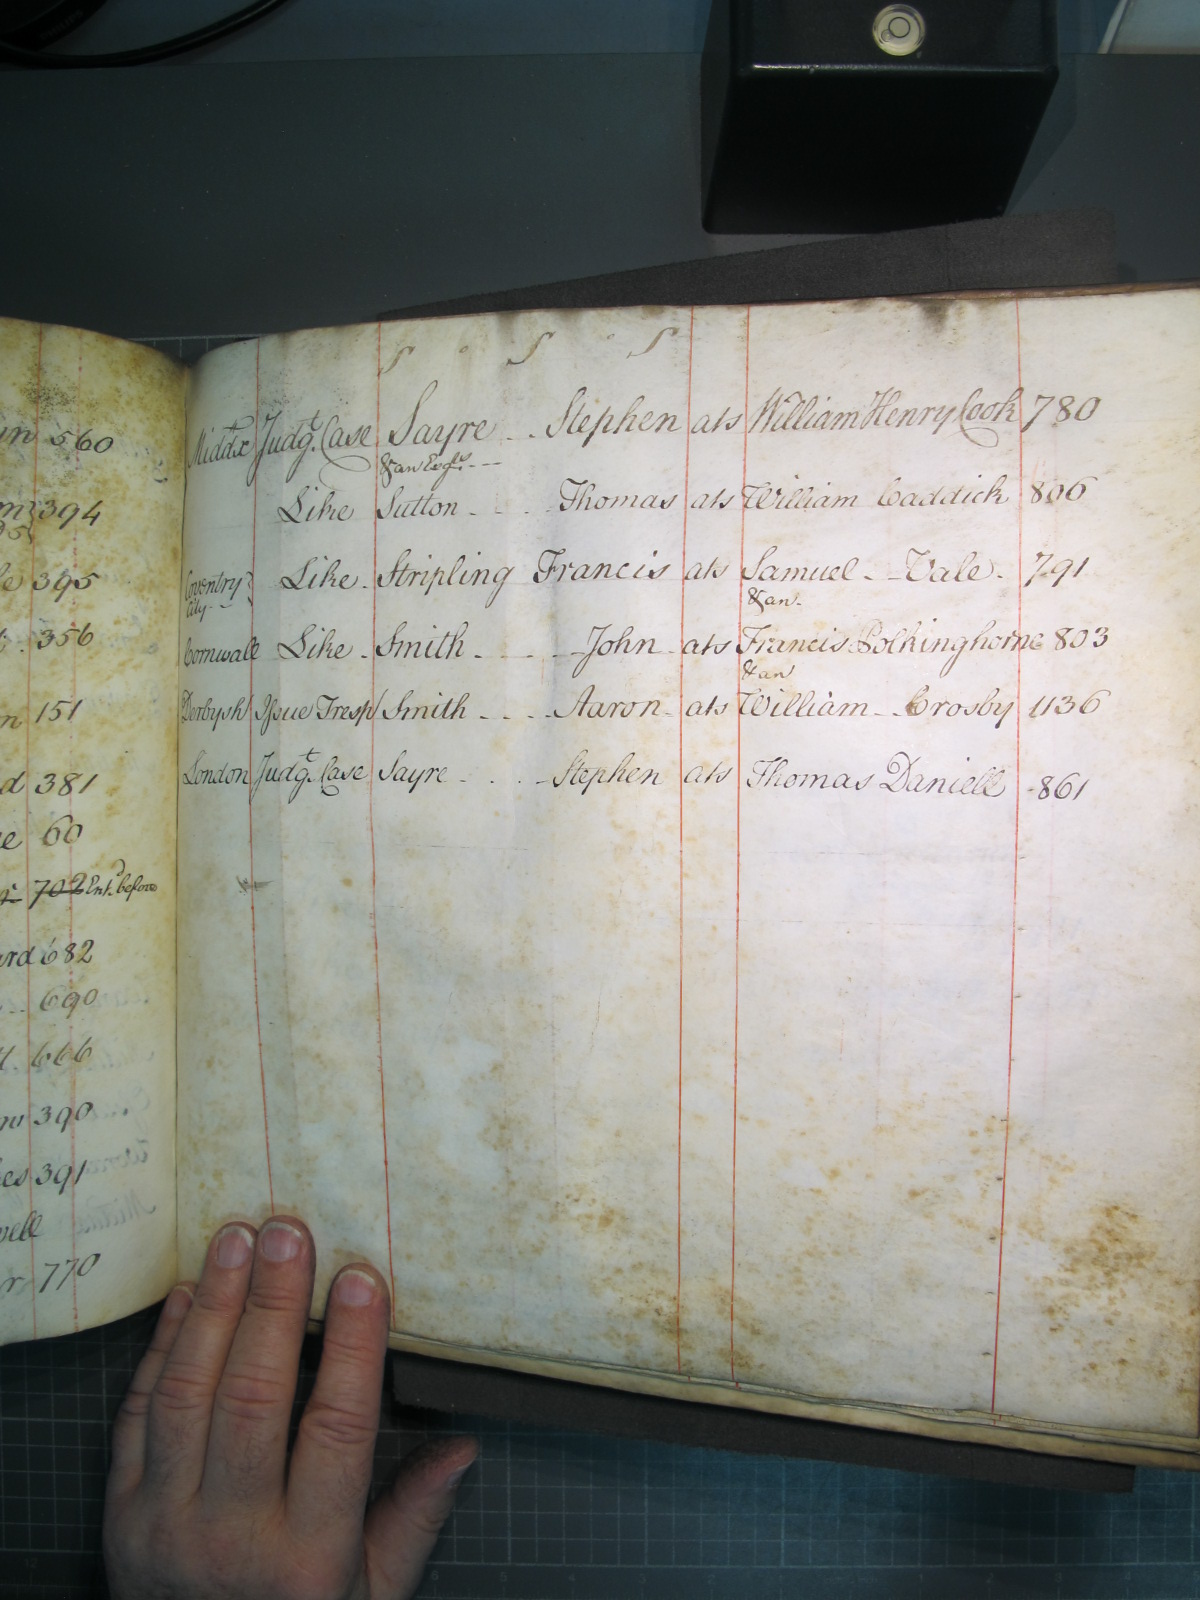 560
394
395
356
151
381
60
702 Ent.d before
682
690
666
390
391
770
S S S
Middx Judgt. Case Sayre Stephen ats William Henry Cook 780
&an Esqrs.
Like Sutton Thomas ats William Caddick 806
Coventry City Like Stripling Francis ats Samuel Vale 791
&an
Cornwall Like Smith John ats Francis Polkinghorne 803
&an
Derbysh Issue Tresp Smith Aaron ats William Crosby 1136
London Judgt. Case Sayre Stephen ats Thomas Daniell 861